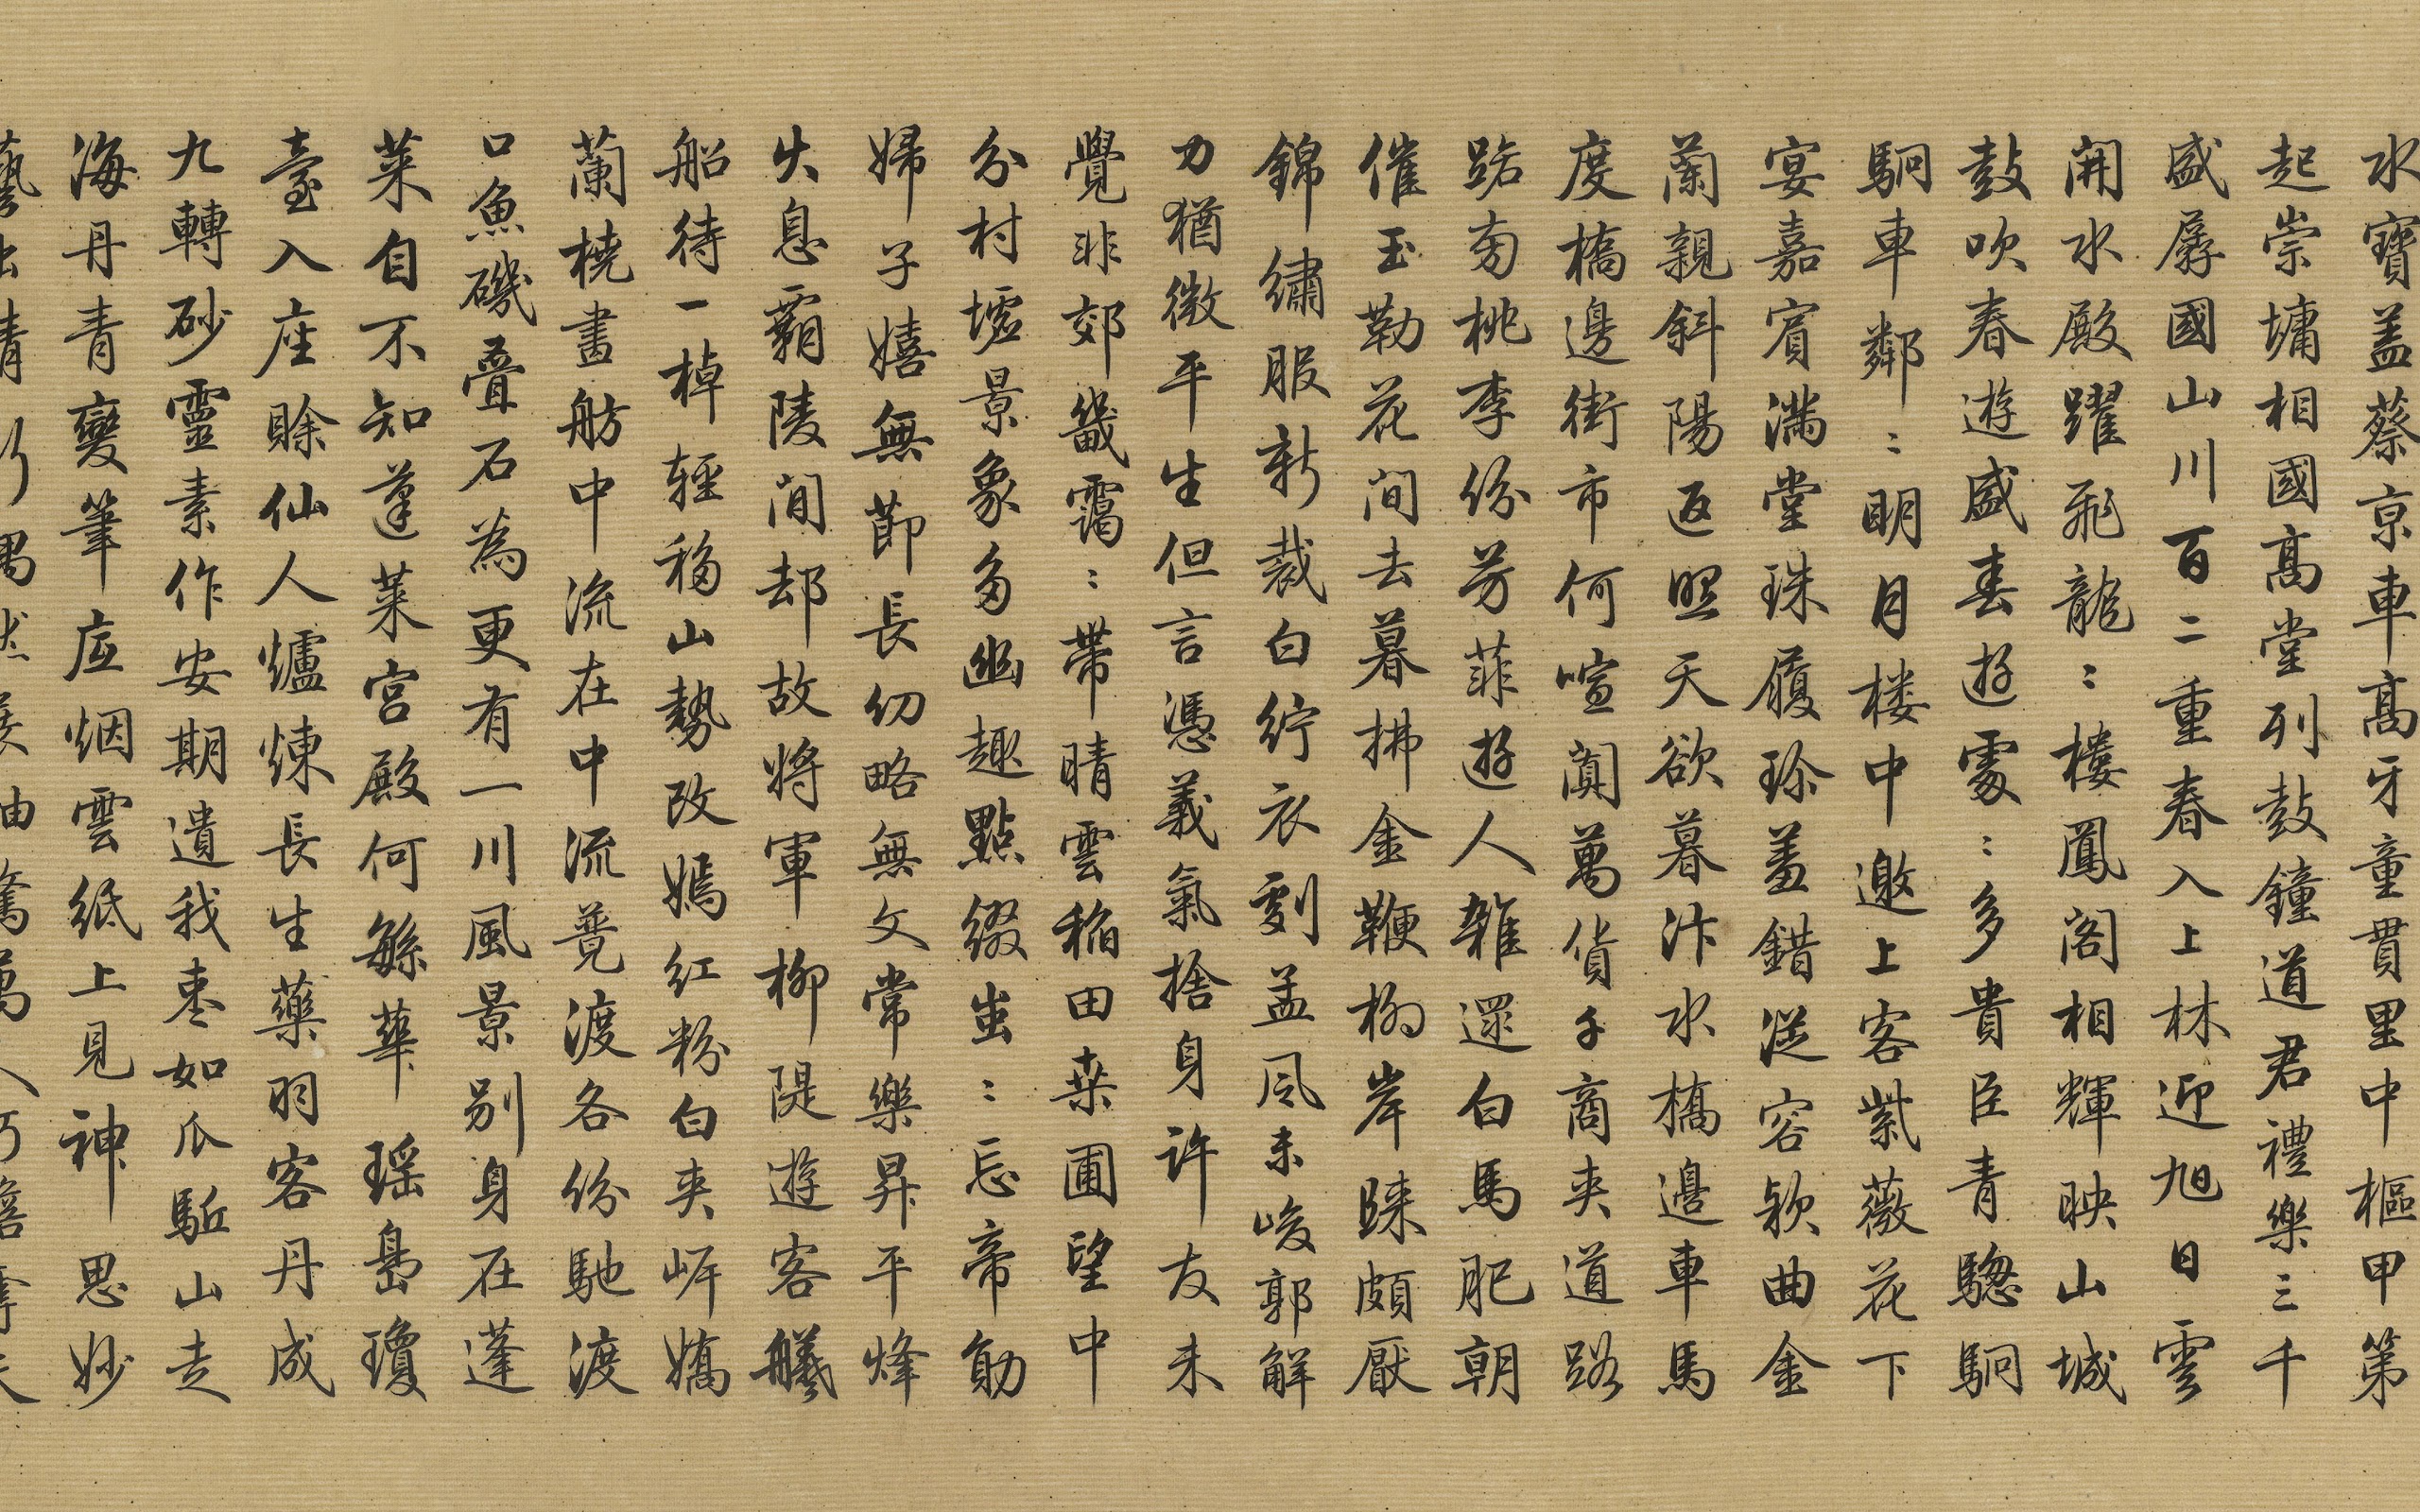 水寶盖蔡京車高牙童貫里中樞甲第
起崇墉相國高堂列鼓鐘道君禮樂三千
盛孱國山川百二重春入上林迎旭日雲
開水殿躍飛龍〻樓鳳阁相輝映山城
鼓吹春遊盛春遊處〻多貴臣青驄駉
駉車鄰〻明月月楼中邀上客紫薇花下
宴嘉賓滿堂珠履珍羞錯從容欵曲金
蘭親斜陽返照天欲暮汴水橋邊車馬
度橋邊街市何喧闐萬貨千商夹道路
路旁桃李份芳菲遊人雜還白馬肥朝
催玉勒花间去暮拂金鞭柳岸睐頗厭
錦繡服新裁白紵衣劇孟风未峻郭解
力猶微平生但言憑義氣捨身许友未
覺非郊畿靄〻帶晴雲稲田桒圃望中
分村墟景象多幽趣點缀蚩〻忘帝勛
婦子嬉無莭長幼略無文常樂昇平烽
火息霸陵间却故將軍柳隄遊客艤
船待一棹轻移山勢改嫣红粉白夹岍嬌
蘭橈畫舫中流在中流竟渡各份馳渡
口魚磯叠石為更有一川風景别身在蓬
莱自不知蓬莱宫殿何繇華瑶島瓊
臺入座賒仙人爐煉長生藥羽客丹成
九轉砂靈素作安期遺我枣如瓜駈山走
海丹青變筆底烟雲紙上見神思妙